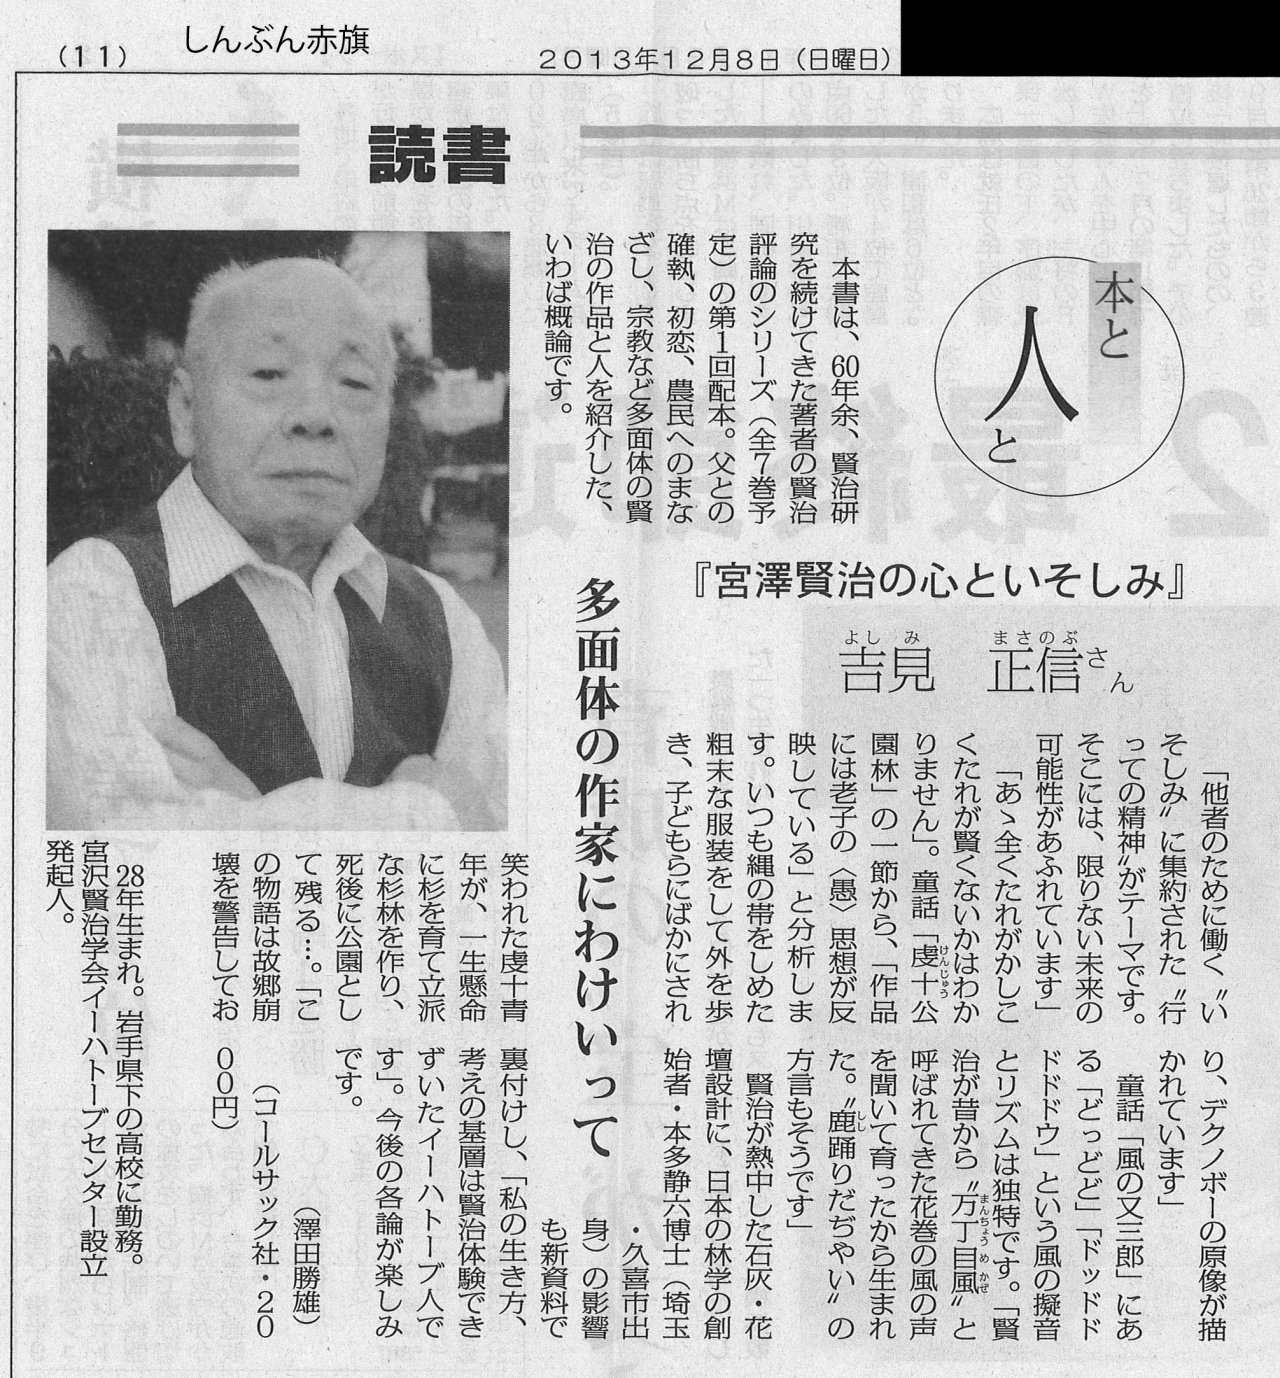 (11)
しんぶん赤旗
2013年12月8日（日曜日）
読書
本と
人
と
『宮澤賢治の心といそしみ』
よしみ まさのぶ
吉見 正信さん
多面体の作家にわけいって
本書は、60年余、賢治研
究を続けてきた著者の賢治
評論のシリーズ（全7巻予
定）の第1回配本。父との
確執、初恋、農民へのまな
ざし、宗教など多面体の賢
治の作品と人を紹介した、
いわば概論です。
「他者のために働く〝い
そしみ〟に集約された〝行
っての精神〟がテーマです。
そこには、限りない未来の
可能性があふれています」
「あゝ全くたれがかしこ
くたれが賢くないかはわか
りません」。童話「虔十公
けんじゅう
園林」の一節から、「作品
には老子の〈愚〉思想が反
映している」と分析しま
す。いつも縄の帯をしめた
粗末な服装をして外を歩
き、子どもらにばかにされ
笑われた虔十青
年が、一生懸命
に杉を育て立派
な杉林を作り、
死後に公園とし
て残る…。「こ
の物語は故郷崩
壊を警告してお
り、デクノボーの原像が描
かれています」
童話「風の又三郎」にあ
る「どっどど」「ドッドド
ドドドウ」という風の擬音
とリズムは独特です。「賢
治が昔から〝万丁目風〟と
まんちょうめかぜ
呼ばれてきた花巻の風の声
を聞いて育ったから生まれ
た。〝鹿踊りだぢやい〟の
しし
方言もそうです」
賢治が熱中した石灰・花
壇設計に、日本の林学の創
始者・本多静六博士（埼玉
・久喜市出
身）の影響
も新資料で
裏付けし、「私の生き方、
考えの基層は賢治体験でき
ずいたイーハトーブ人で
す」。今後の各論が楽しみ
です。
（澤田勝雄）
（コールサック社・20
00円）
28年生まれ。岩手県下の高校に勤務。
宮沢賢治学会イーハトーブセンター設立
発起人。